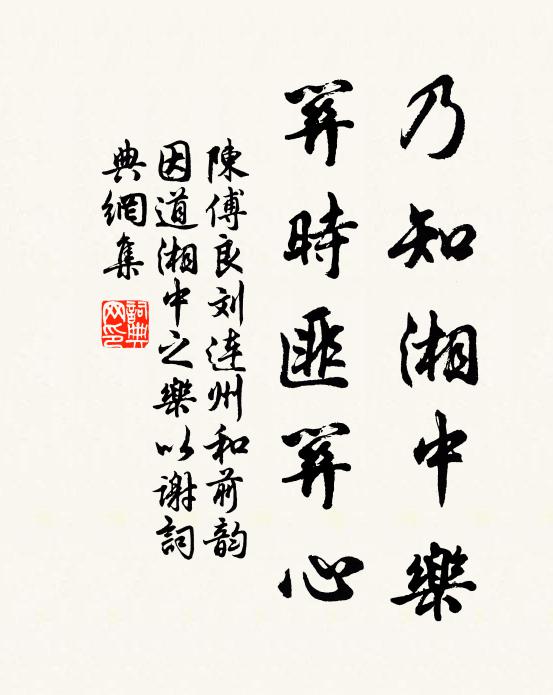 乃知湘中樂
時匪心
陳傅良刘连州和前韵
因道湘中之樂以谢詞
典網集
詞典
网印